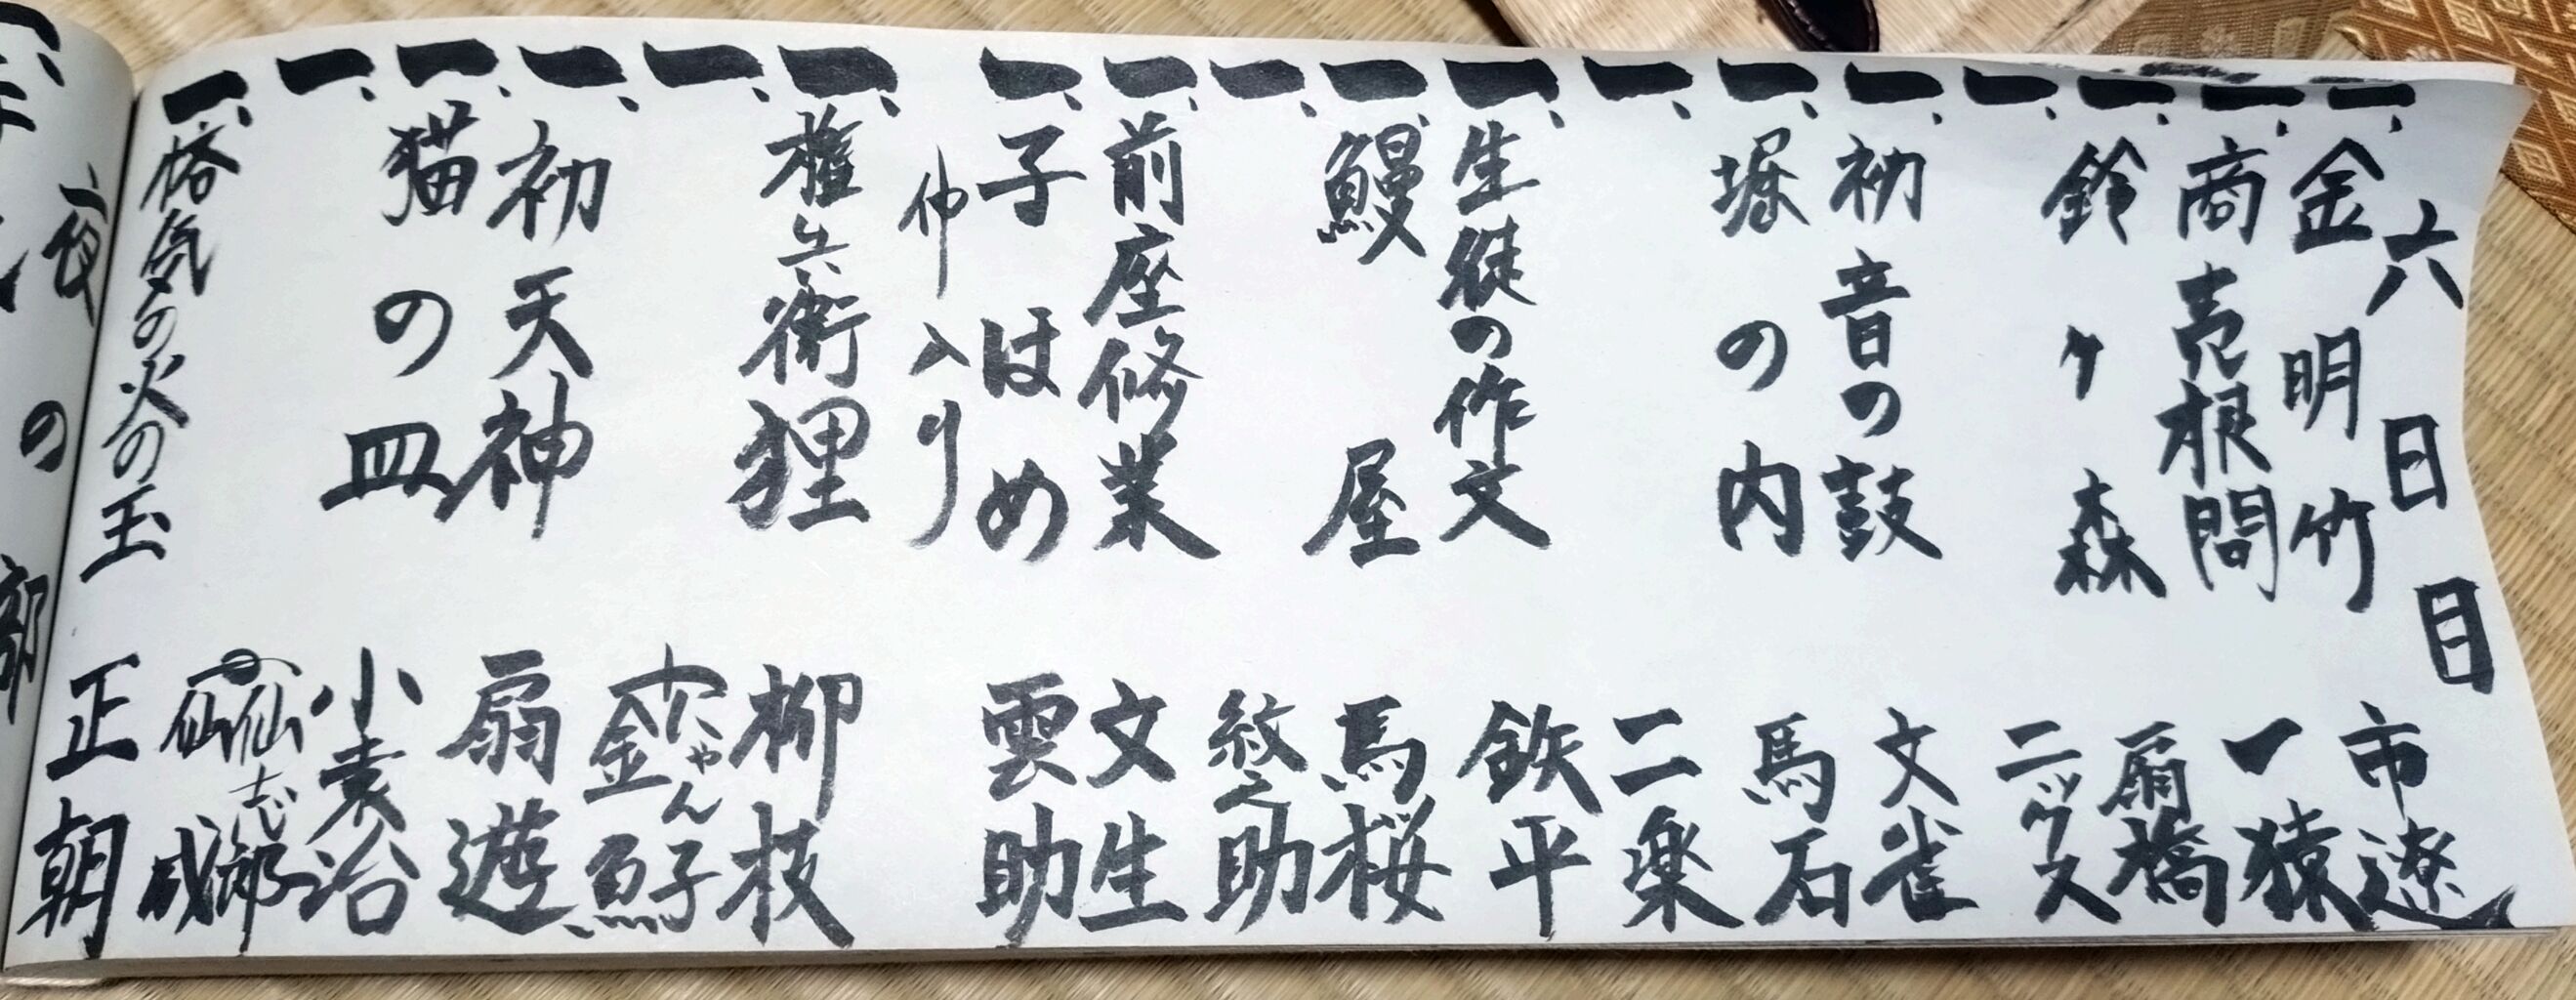 六日目
一、金明竹 市遼
一、商売根問 一猿
一、鈴ヶ森 扇橋
一、 ニックス
一、初音の鼓 文雀
一、堀の内 馬石
一、 二楽
一、生徒の作文 鉄平
一、鰻屋 馬桜
一、 紋之助
一、前座修業 文生
一、子はめ 雲助
仲入り
一、権兵衛狸 柳枝
一、 にゃん子金魚
一、初天神 扇遊
一、猫の皿 小袁治
一、 仙志郎 仙成
一、悋気の火の玉 正朝
夜の部